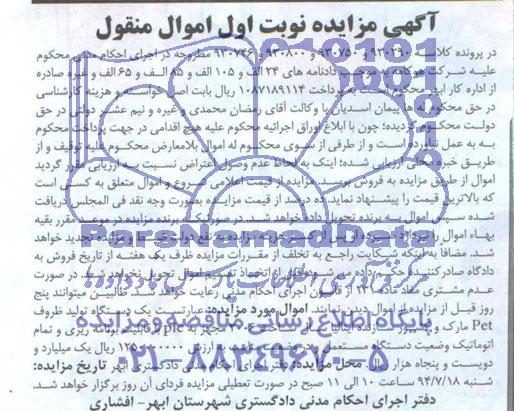 آگهی مزایده نوبت اول اموال منقول
در پرونده کلاسه ۹۳۰۲۹۰ و ۹۳۰۷۵۰ و ۹۳۰۸۰۰ و ۹۳۰۷۴۶ مطروحه در اجرای احکام مدنی محکوم
علیه شرکت هوکامه به موجب دادنامه های ۲۴ الف و ۱۰۵ الف و ۸۵ الف و ۶۵ الف و غیره صادره
از اداره کار ابهر محکوم است به پرداخت ۱۰۸۷۱۸۹۱۱۴ ریال بابت اصل خواسته و هزینه کارشناسی
در حق محکوم له ها پیمان اسدیان با وکالت آقای رمضان محمدی و غیره و نیم عشر دولتی در حق
دولت محکوم گردیده؛ چون با ابلاغ اوراق اجرائیه محکوم علیه هیچ اقدامی در جهت پرداخت محکوم
به به عمل نیاورده است و از طرفی از سوی محکوم له اموال بلامعارض محکوم علیه توقیف و از
طریق خبره محلی ارزیابی شده؛ اینک به لحاظ عدم وصول اعتراض نسبت به ارزیابی مقرر گردید
اموال از طریق مزایده به فروش برسد مزایده از قیمت اعلامی شروع و اموال متعلق به کسی است
که بالاترین قیمت را پیشنهاد نماید. ده درصد از قیمت مزایده بصورت وجه نقد فی المجلس دریافت
شده سپس اموال به برنده تحویل داده خواهد شد. در صورتیکه برنده مزایده در موعد مقرر بقیه
بهاء اموال را نپردازد سپرده او پس از کسر هزینه مزایده به نفع دولت ضبط و مزایده تجدید خواهد
شد. مضافا به اینکه شکایت راجع به تخلف از مقررات مزایده ظرف یک هفته از تاریخ فروش به
دادگاه صادرکننده حکم داده می شود و قبل از اتخاذ تصمیم اموال تحویل نخواهد شد. در صورت
عدم مشتری مفاد ماده ۱۳۲ از قانون اجرای احکام مدنی رعایت خواهد شد. طالبین میتوانند پنج
روز قبل از مزایده از اموال بازدید نمایند. اموال مورد مزایده: عبارتست یک دستگاه تولید ظروف
Pet مارک و سازنده ایتالیا ساخت مجهز به plc با قابلیت برنامه ریزی و تمام
اتوماتیک وضعیت دستگاه مستعمل به ارزش ۱۲۵۰۰۰۰۰۰۰ ریال یک میلیارد و
دویست و پنجاه هزار ریال. محل مزایده: دفتر اجرای احکام مدنی دادگستری ابهر تاریخ مزایده:
شنبه ۹۴/۷/۱۸ ساعت ۱۰ الی ۱۱ صبح در صورت تعطیلی مزایده فردای آن روز برگزار خواهد شد.
دفتر اجرای احکام مدنی دادگستری شهرستان ابهر- افشاری
ParsNamadData
پایگاه اطلاع رسانی مناقصه و مزایده
۰۲۱-۸۸۳۴۹۶۷۰-۵